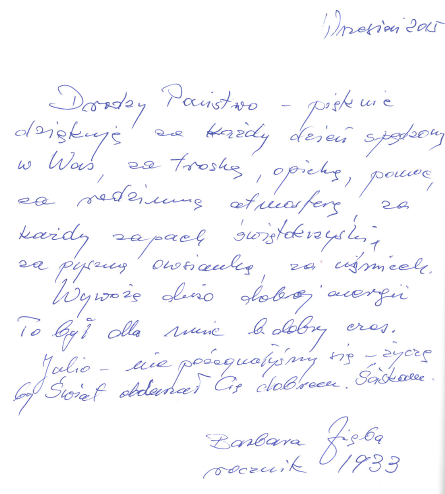 Wrzesień 2015
Drodzy Państwo – pięknie
dziękuję za każdy dzień spędzony
w Was, za troskę, opiekę, pomoc,
za rodzinną atmosferę, za
każdy zapach świętokrzyski,
za pyszną owsiankę, za uśmiech.
Wywożę dużo dobrej energii
To był dla mnie b. dobry czas.
Julio – nie pożegnałyśmy się – życzę
by Świat obdarzał Cię dobrem. Ściskam.
Barbara Zięba
rocznik 1933